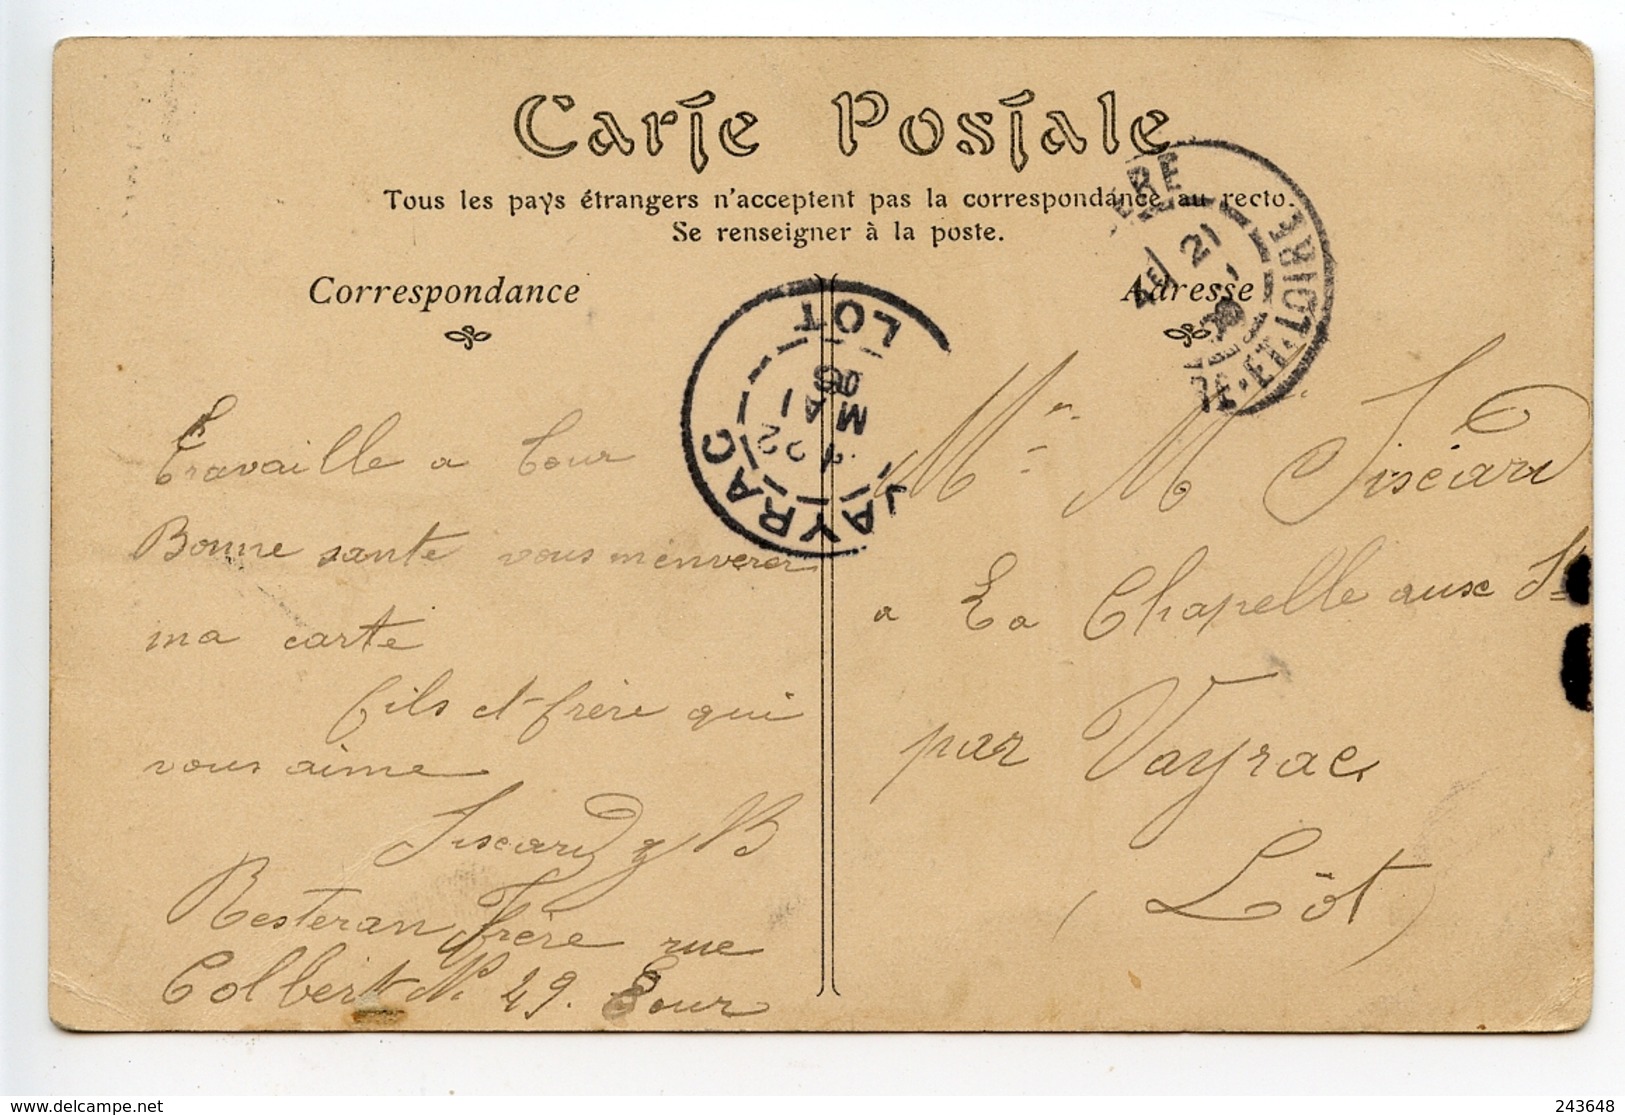 Carte Postale
Tous les pays étrangers n'acceptent pas la correspondance au recto.
Se renseigner à la poste.
Correspondance
Adresse
LOT
VAYRAC
22
MAI
ET-LOIRE
21
Travaille a Tour
Bonne sante vous m'enverer
ma carte
fils et frère qui
vous aime
Siscard B
Resteran frère rue
Colbert No 29. Tour
Mr M Siscard
a La Chapelle aux St
par Vayrac
(Lot)
delcampe.net
243648